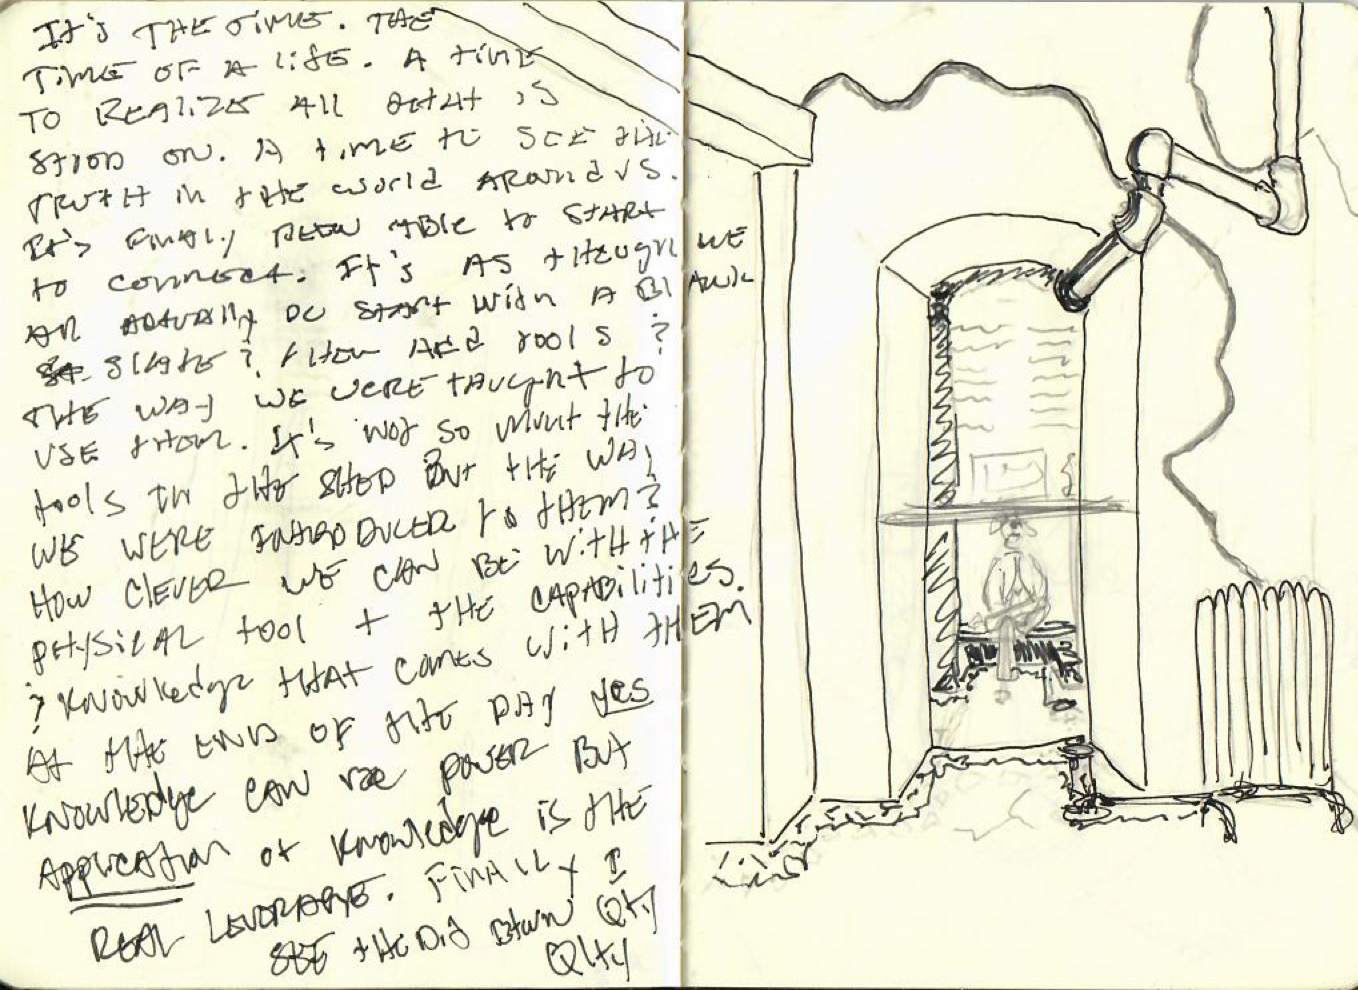 It's THE TIME. THE
TIME OF A LIFE. A TIME
TO REALIZE All that is
STOOD ON. A TIME to SEE THE
TRUTH in THE world AROUND US.
It's FINALLY BEEN ABLE to START
to CONNECT. It's AS though WE
ARE ACTUALLY DO START with A BLANK
SLATE? THEN ADD TOOLS?
THE WAY WE WERE taught to
USE THEM. It's not so much the
tools IN THE SHED BUT THE WAY
WE WERE INTRODUCED to THEM?
HOW CLEVER WE CAN BE WITH THE
PHYSICAL tool + THE CAPABILITIES.
? KNOWledge THAT COMES WITH THEM
At THE END OF THE DAY yes
KNOWLEDge CAN POWER BUT
APPLICATION of KNOWledge is THE
REAL LEVERAGE. FINALLY I
SEE THE btwn Qty
Qlty